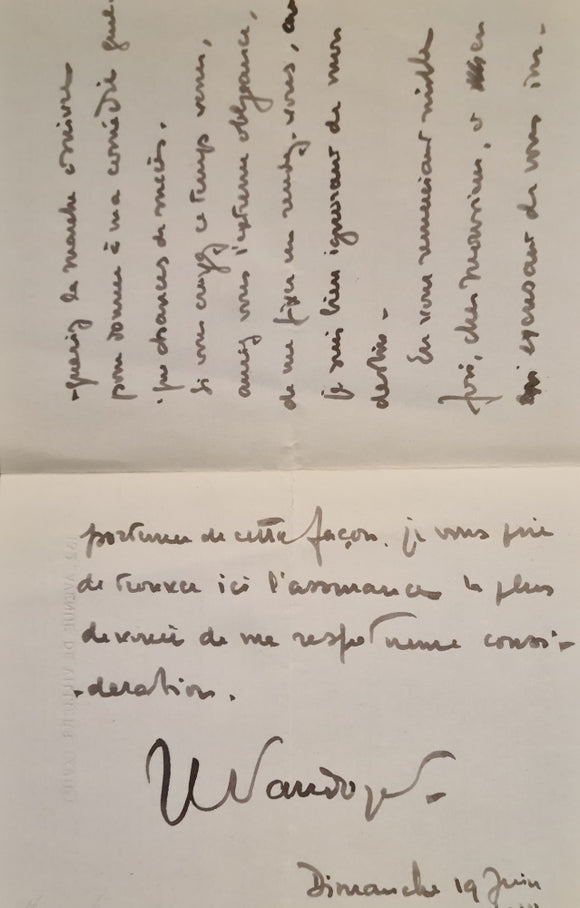 -queriez la marche à suivre
pour donner à ma comédie quel-
-ques chances de succès.
Si vous croyez ce temps venu,
auriez vous l'extrême obligeance,
de me fixer un rendez-vous, car
je suis bien ignorant de mon
destin.
En vous remerciant mille
fois, cher Monsieur, et en
m'excusant de vous im-
portuner de cette façon, je vous prie
de trouver ici l'assurance la plus
dévouée de ma respectueuse consi-
-dération.
Dimanche 19 Juin